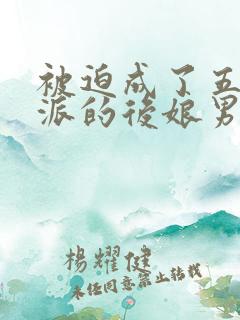 被迫成了五
派的後娘男
楊耀健
未經同意禁止轉載